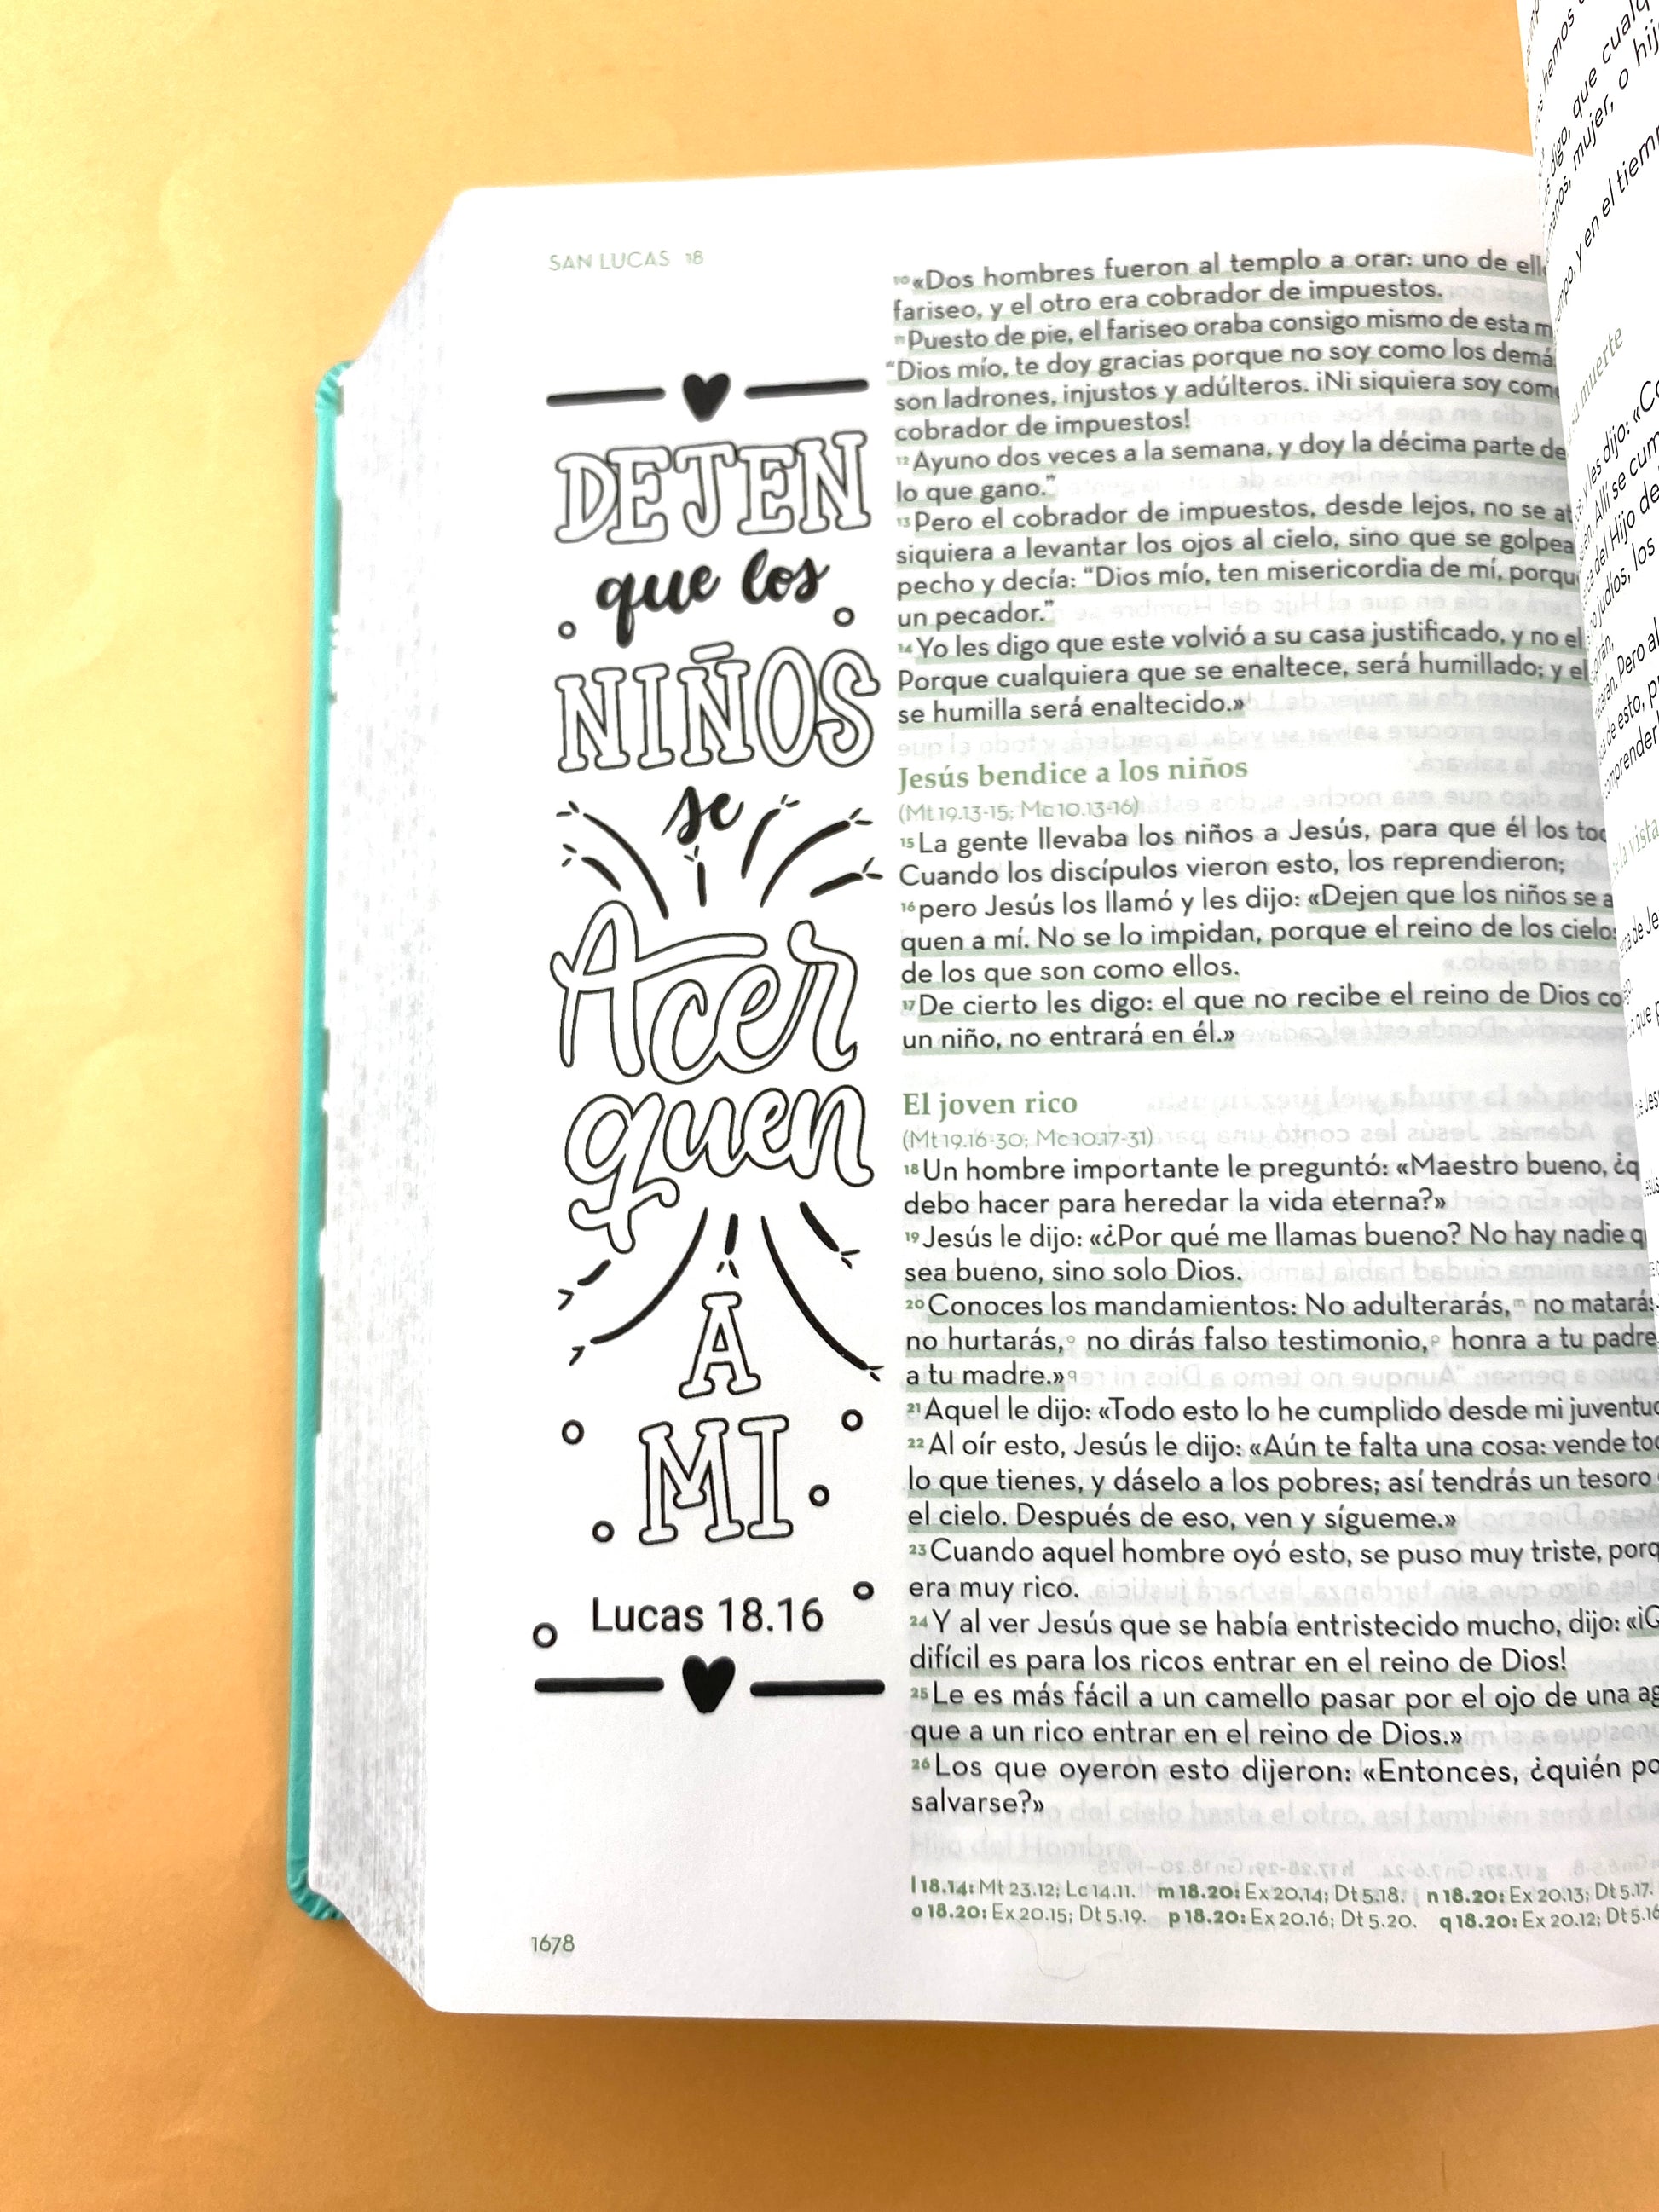 SAN LUCAS 18
DEJEN
que los
NIÑOS
se
Acer
quen
A
MI
Lucas 18.16
10 «Dos hombres fueron al templo a orar: uno de
fariseo, y el otro era cobrador de impuestos.
11 Puesto de pie, el fariseo oraba consigo mismo de esta
“Dios mío, te doy gracias porque no soy como los
son ladrones, injustos y adúlteros. ¡Ni siquiera soy
cobrador de impuestos!
12 Ayuno dos veces a la semana, y doy la décima parte de
lo que gano.”
13 Pero el cobrador de impuestos, desde lejos, no se
siquiera a levantar los ojos al cielo, sino que se
pecho y decía: “Dios mío, ten misericordia de mí,
un pecador.”
14 Yo les digo que este volvió a su casa justificado, y no el
Porque cualquiera que se enaltece, será humillado; y el
se humilla será enaltecido.» l
Jesús bendice a los niños
(Mt 19.13-15; Mc 10.13-16)
15 La gente llevaba los niños a Jesús, para que él los
Cuando los discípulos vieron esto, los reprendieron;
16 pero Jesús los llamó y les dijo: «Dejen que los niños se a
quen a mí. No se lo impidan, porque el reino de los
de los que son como ellos.
17 De cierto les digo: el que no recibe el reino de Dios
un niño, no entrará en él.»
El joven rico
(Mt 19.16-30; Mc 10.17-31)
18 Un hombre importante le preguntó: «Maestro bueno,
debo hacer para heredar la vida eterna?»
19 Jesús le dijo: «¿Por qué me llamas bueno? No hay nadie
sea bueno, sino solo Dios.
20 Conoces los mandamientos: No adulterarás, m no
no hurtarás, o no dirás falso testimonio, p honra a tu padre
a tu madre.» q
21 Aquel le dijo: «Todo esto lo he cumplido desde mi
22 Al oír esto, Jesús le dijo: «Aún te falta una cosa: vende
lo que tienes, y dáselo a los pobres; así tendrás un tesoro
el cielo. Después de eso, ven y sígueme.»
23 Cuando aquel hombre oyó esto, se puso muy triste,
era muy rico.
24 Y al ver Jesús que se había entristecido mucho, dijo:
difícil es para los ricos entrar en el reino de Dios!
25 Le es más fácil a un camello pasar por el ojo de una
que a un rico entrar en el reino de Dios.»
26 Los que oyeron esto dijeron: «Entonces, ¿quién
salvarse?»
l 18.14: Mt 23.12; Lc 14.11. m 18.20: Ex 20.14; Dt 5.18. n 18.20: Ex 20.13; Dt 5.17.
o 18.20: Ex 20.15; Dt 5.19. p 18.20: Ex 20.16; Dt 5.20. q 18.20: Ex 20.12; Dt 5.16
1678
hemos
digo, que
mujer, o
y en el
muerte
les dijo:
Allí se
del Hijo de
judíos, los
Pero al
de esto,
vista
de
que